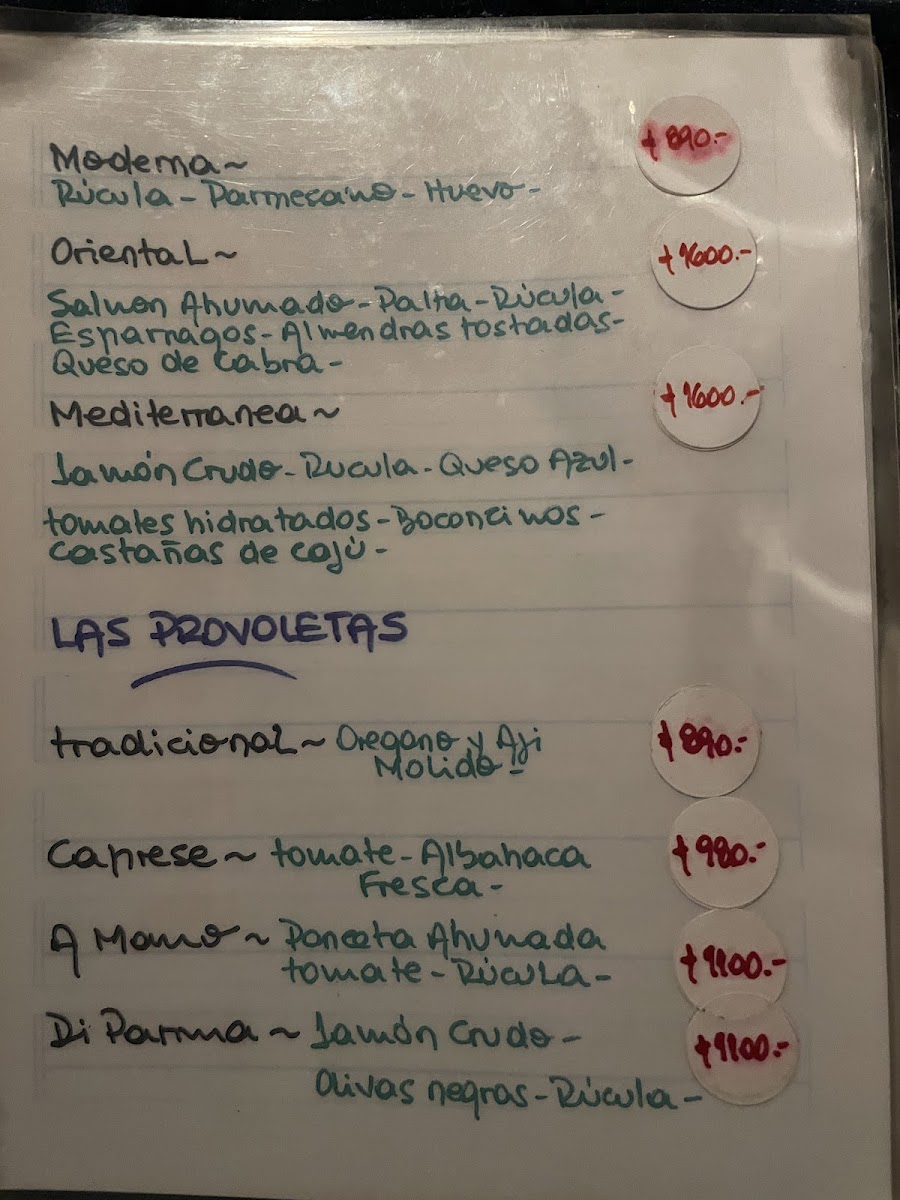 Moderna~
+890.-
Rúcula - Parmesano - Huevo -
Oriental~
+1600.-
Salmon Ahumado - Palta - Rúcula -
Esparragos - Almendras tostadas-
Queso de Cabra -
Mediterranea~
+1600.-
Jamón Crudo - Rucula - Queso Azul -
tomates hidratados - Boconcinos -
Castañas de cajú -
LAS PROVOLETAS
tradicional ~ Oregano y Aji
Molido -
+890.-
Caprese ~ tomate - Albahaca
Fresca -
+980.-
A Mano ~ Panceta Ahumada
tomate - Rúcula -
+1100.-
Di Parma ~ Jamón Crudo -
+1100.-
Olivas negras - Rúcula -